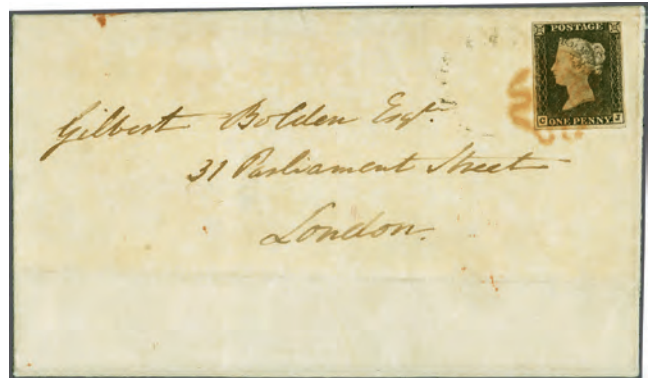 POSTAGE
ONE PENNY
Gilbert Bolden Esqr.
31 Parliament Street
London.